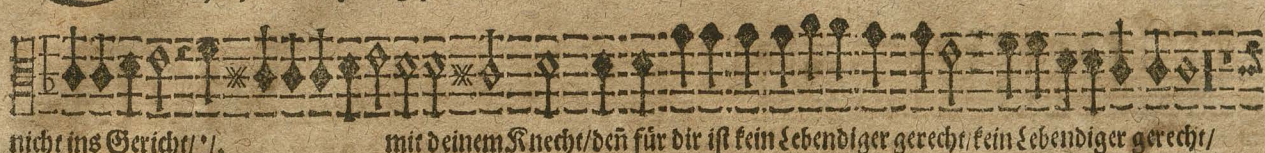 nicht ins Gericht/·/. mit deinem Knecht/deñ für dir ist kein Lebendiger gerecht/kein Lebendiger gerecht/